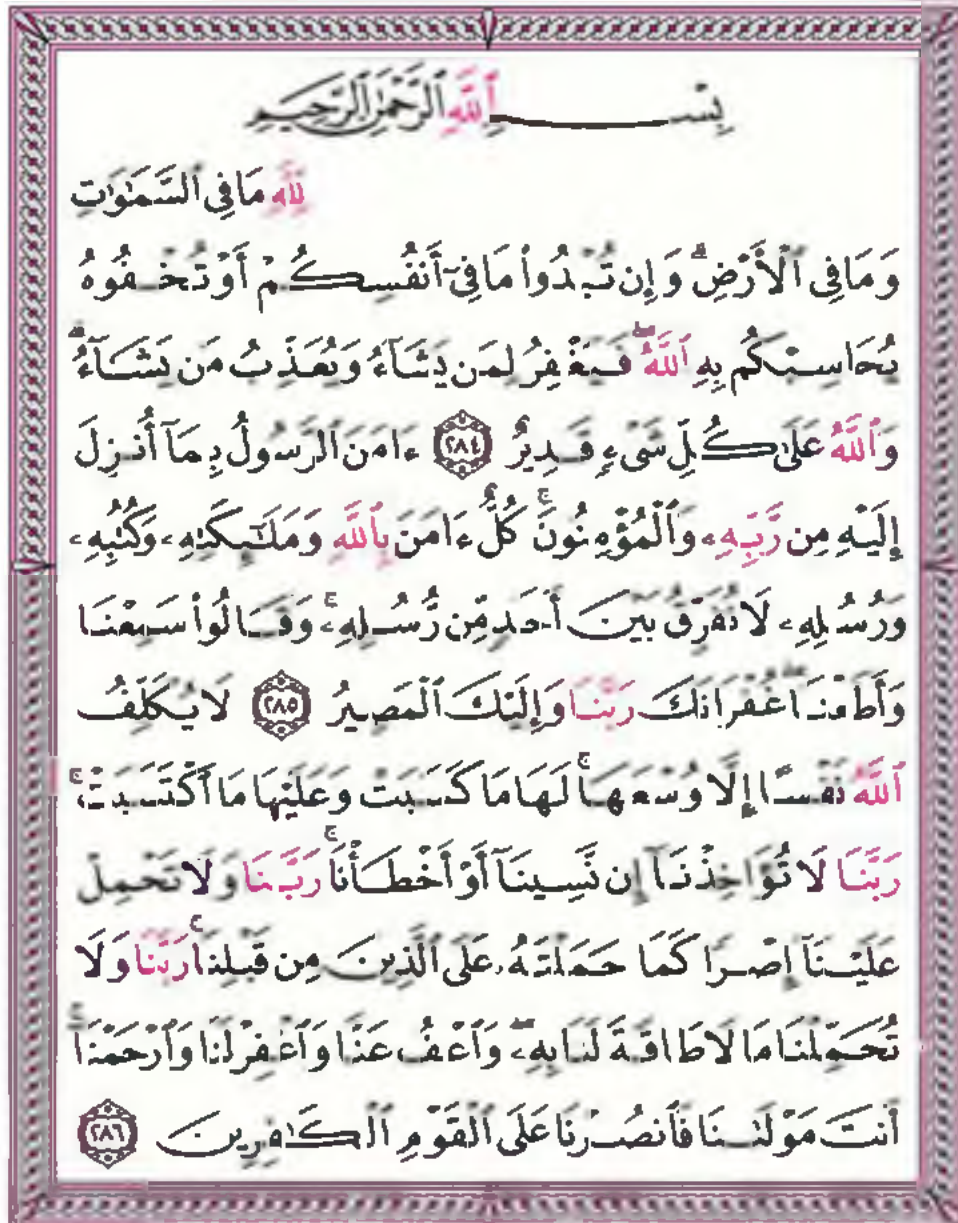 بِسْـــــــمِ ٱللَّهِ ٱلرَّحْمَٰنِ ٱلرَّحِيمِ
لِلَّهِ مَا فِى ٱلسَّمَٰوَٰتِ
وَمَا فِى ٱلْأَرْضِ ۗ وَإِن تُبْدُوا۟ مَا فِىٓ أَنفُسِكُمْ أَوْ تُخْفُوهُ
يُحَاسِبْكُم بِهِ ٱللَّهُ ۖ فَيَغْفِرُ لِمَن يَشَآءُ وَيُعَذِّبُ مَن يَشَآءُ ۗ
وَٱللَّهُ عَلَىٰ كُلِّ شَىْءٍ قَدِيرٌ ٢٨٤ ءَامَنَ ٱلرَّسُولُ بِمَآ أُنزِلَ
إِلَيْهِ مِن رَّبِّهِۦ وَٱلْمُؤْمِنُونَ ۚ كُلٌّ ءَامَنَ بِٱللَّهِ وَمَلَٰٓئِكَتِهِۦ وَكُتُبِهِۦ
وَرُسُلِهِۦ لَا نُفَرِّقُ بَيْنَ أَحَدٍ مِّن رُّسُلِهِۦ ۚ وَقَالُوا۟ سَمِعْنَا
وَأَطَعْنَا ۖ غُفْرَانَكَ رَبَّنَا وَإِلَيْكَ ٱلْمَصِيرُ ٢٨٥ لَا يُكَلِّفُ
ٱللَّهُ نَفْسًا إِلَّا وُسْعَهَا ۚ لَهَا مَا كَسَبَتْ وَعَلَيْهَا مَا ٱكْتَسَبَتْ ۗ
رَبَّنَا لَا تُؤَاخِذْنَآ إِن نَّسِينَآ أَوْ أَخْطَأْنَا ۚ رَبَّنَا وَلَا تَحْمِلْ
عَلَيْنَآ إِصْرًا كَمَا حَمَلْتَهُۥ عَلَى ٱلَّذِينَ مِن قَبْلِنَا ۚ رَبَّنَا وَلَا
تُحَمِّلْنَا مَا لَا طَاقَةَ لَنَا بِهِۦ ۖ وَٱعْفُ عَنَّا وَٱغْفِرْ لَنَا وَٱرْحَمْنَآ ۚ
أَنتَ مَوْلَىٰنَا فَٱنصُرْنَا عَلَى ٱلْقَوْمِ ٱلْكَٰفِرِينَ ٢٨٦